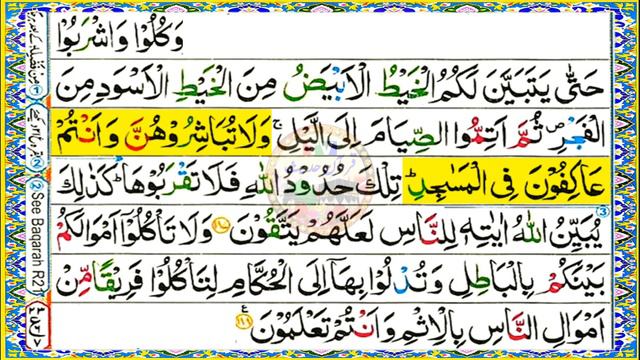 وَكُلُوْا وَاشْرَبُوْا
حَتّٰى يَتَبَيَّنَ لَكُمُ الْخَيْطُ الْاَبْيَضُ مِنَ الْخَيْطِ الْاَسْوَدِ مِنَ
الْفَجْرِ۪ ثُمَّ اَتِمُّوا الصِّيَامَ اِلَى الَّيْلِۚ وَلَا تُبَاشِرُوْهُنَّ وَاَنْتُمْ
عَاكِفُوْنَ فِى الْمَسٰجِدِؕ تِلْكَ حُدُوْدُ اللّٰهِ فَلَا تَقْرَبُوْهَاؕ كَذٰلِكَ
يُبَيِّنُ اللّٰهُ اٰيٰتِهٖ لِلنَّاسِ لَعَلَّهُمْ يَتَّقُوْنَ ۝۱۸۷ وَلَا تَاْكُلُوْۤا اَمْوَالَكُمْ
بَيْنَكُمْ بِالْبَاطِلِ وَتُدْلُوْا بِهَاۤ اِلَى الْحُكَّامِ لِتَاْكُلُوْا فَرِيْقًا مِّنْ
اَمْوَالِ النَّاسِ بِالْاِثْمِ وَاَنْتُمْ تَعْلَمُوْنَ ۝۱۸۸ ع
② See Baqarah R21
③